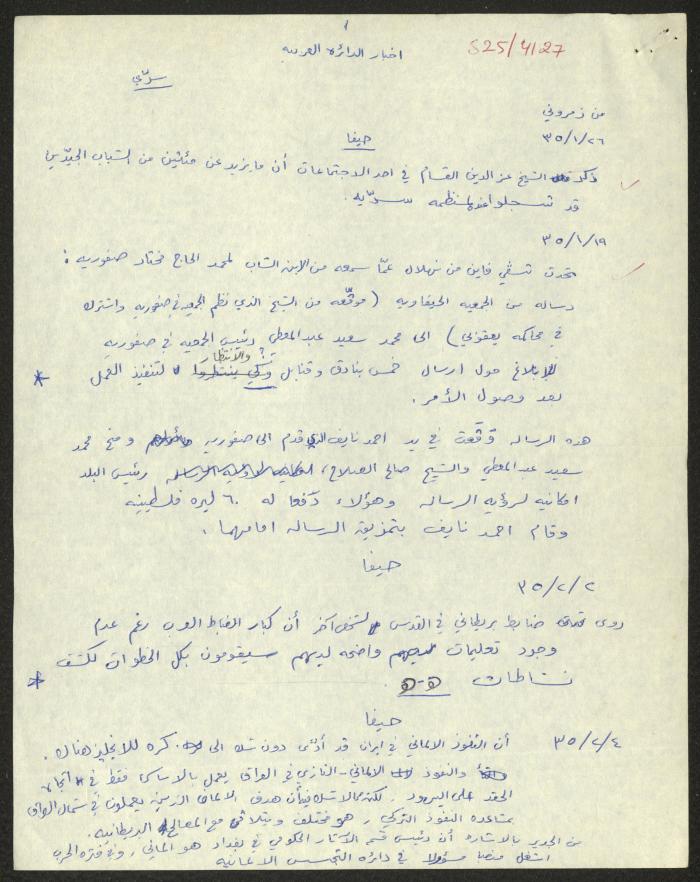 1
اخبار الدائره العربيه
S25/4127
سرّي
من زمروني
٣٥/١/٢٦
حيفا
ذكر الشيخ عز الدين القسام في احد الاجتماعات أن ما يزيد عن مئاتين من الشباب الجيّدين
قد تسجلوا لمنظمه سرّيه.
٣٥/١/١٩
تحدث تسڤي فاين من نهلال عمّا سمعه من الابن الشاب لمحمد الحاج مختار صفوريه:
رساله من الجمعيه الحيفاويه (موقّعه من الشيخ الذي نظم الجمعيه في صفوريه واشترك
في محاكمه يعقوبي) الى محمد سعيد عبد المعطي رئيس الجمعيه في صفوريه
والانتظار
حول ارسال خمس بنادق وقنابل لتنفيذ العمل *
بعد وصول الأمر.
هذه الرساله وقعت في يد احمد نايف الذي قدم الى صفوريه ومنح محمد
سعيد عبد المعطي والشيخ صالح رئيس البلد
امكانيه لرؤيه الرساله وهؤلاء دفعا له ٦٠ ليره فلسطينيه
وقام احمد نايف بتمزيق الرساله امامهما.
حيفا
٣٥/٢/٢
روى ضابط بريطاني في القدس لشخص آخر أن كبار الضباط العرب رغم عدم
وجود تعليمات واضحه لديهم سيقومون بكل الخطوات لكشف
نشاطات *
حيفا
٣٥/٢/٤ أن النفوذ الالماني في ايران قد أدّى دون شك الى كره للانجليز هناك.
والنفوذ الالماني-النازي في العراق يعمل بالاساس فقط في اتجاه
الحقد على اليهود. الالمان الذين يعملون في شمال العراق
بمساعده النفوذ التركي، هو مختلف مع المصالح البريطانيه.
من الجدير بالاشاره أن رئيس قسم الآثار الحكومي في بغداد هو الماني، وفي فتره الحرب
اشغل منصبا في دائره التجسس الالمانيه